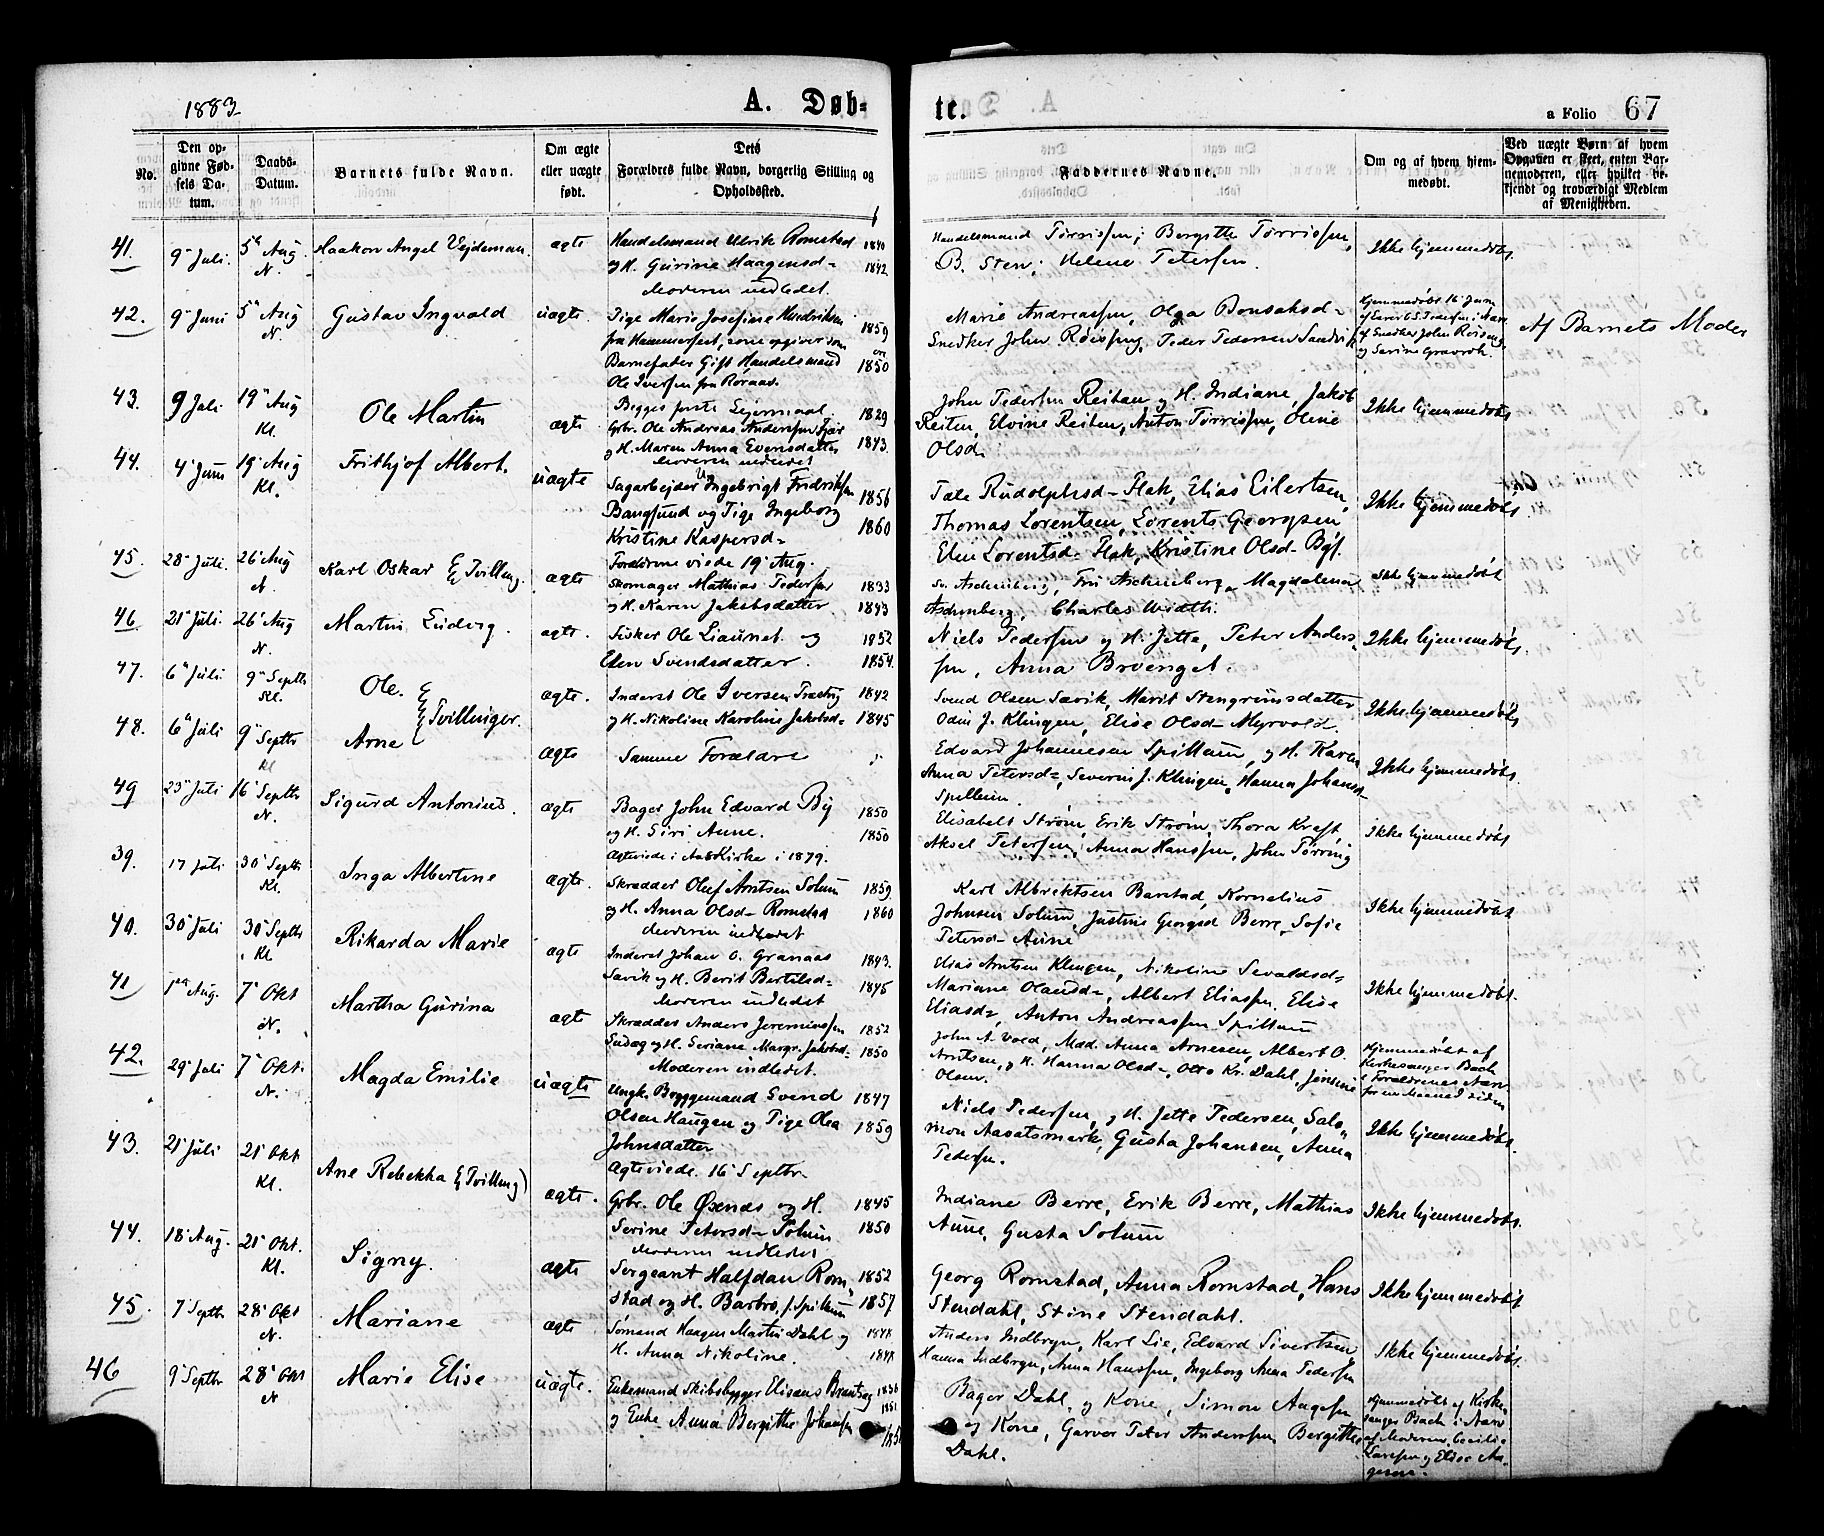 1883
A. Døb=
te.
a Folio 67
No.
Den op-
givne Fød-
sels Da-
tum.
Daabs-
Datum.
Barnets fulde Navn.
Om ægte
eller uægte
født.
Dets
Forældres fulde Navn, borgerlig Stilling og
Opholdssted.
Faddernes Navne.
Om og af hvem hjem-
medøbt.
Ved uægte Børn af hvem
Opgaven er skeet, enten Bar-
nemoderen, eller hvilket be-
kjendt og troværdigt Medlem
af Menigheden.
41. 9 Juli. 5 Aug N. Haakon Angel Vejdeman. ægte
Handelsmand Ulrik Romstad 1840
og H. Gurine Haagensd= 1842
Moderen indledet.
Handelsmand Tørrissen; Bergitte Tørrissen,
B. Sten; Helene Petersen.
Ikke hjemmedøbt
42. 9 Juni 5 Aug N. Gustav Ingvald uægte.
Pige Marie Josefine Hendriksen 1859
fra Hammerfest, som opgiver som
Barnefader Gift Handelsmand 1850
Ole Iversen fra Røraas.
Begges første Lejermaal.
Marie Andreassen, Olga Bonsaksd=
Snedker John Røising, Peder Pedersen Sandvik
Hjemmedøbt 16 Juni
af Snedker John Røising
og Serine Gravrok.
Af Barnets Moder
43. 9 Juli 19 Aug Kl. Ole Martin ægte
Gbr. Ole Andreas Anderssen 1829
og H. Maren Anna Evensdatter 1843.
Moderen indledet
John Pedersen Reitan og H. Indiane, Jakob
Reiten, Elvine Reiten, Anton Tørrissen, Oline
Olsd.
Ikke hjemmedøbt
44. 4 Juni 19 Aug Kl. Frithjof Albert. uægte
Sagarbejder Ingebrigt Fredriksen 1856
Bangsund og Pige Ingeborg 1860
Kristine Kaspersd=
Forældrene viede 19 Aug.
Tale Rudolphsd= Flak, Elias Eilertsen,
Thomas Lorentsen, Lorents Georgsen
Elen Lorentsd= Flak, Kristine Olsd=
Ikke hjemmedøbt.
45. 28 Juli. 26 Aug N. Karl Oskar (Tvilling) ægte
Skomager Mathias Pedersen 1833
og H. Karen Jakobsdatter 1843
Aschenberg, Fru Aschenberg, Magdalena
Aschenberg, Charles Width.
Ikke hjemmedøbt
46 21 Juli. 26 Aug N. Martin Ludvig. ægte.
Fisker Ole Liaunet og 1852
Elen Svendsdatter. 1854.
Niels Pedersen og H. Jette, Peter Anders
sen, Anna Brøenget.
Ikke hjemmedøbt.
47. 6 Juli 9 Septbr Kl. Ole. ægte
Tvillinger.
Inderst Ole Iversen 1842
og H. Nikoline Karoline Jakobsd= 1845
Svend Olsen Sævik, Marit Stengrimsdatter
Odin J. Klingen, Elise Olsd= Myrvold.
Ikke hjemmedøbt
48. 6 Juli 9 Septbr Kl Arne ægte
Samme Forældre
Edvard Johannesen Spillum, og H. Karen
Anna Petersd=, Severin J. Klingen, Hanna Johansd=
Spillum.
Ikke hjemmedøbt.
49 23 Juli 16 Septbr N. Sigurd Antonius. ægte
Bager John Edvard By 1850
og H. Siri Aune. 1850
Ægteviede i Kirke i 1879.
Elisabeth Strøm, Erik Strøm, Thora Kraft,
Aksel Petersen, Anna Hanssen, John Tørring
Ikke hjemmedøbt
39. 17 Juli 30 Septbr Kl. Inga Albertine ægte.
Skrædder Oluf Arntsen Solum 1859
og H. Anna Olsd= Romstad 1860
Moderen indledet
Karl Albrektsen Barstad, Kornelius
Johnsen Solum, Justine Georgsd Berre, Sofie
Petersd= Aune
Ikke hjemmedøbt
40. 30 Juli 30 Septbr Kl Rikarda Marie ægte
Inderst Johan O. Granaas 1843.
Sævik og H. Berit Bertilsd= 1845
Moderen indledet
Elias Arntsen Klingen, Nikoline Sevaldsd=
Mariane Olausd=, Albert Eliassen, Elise
Eliasd=, Anton Andreassen Spillum
Ikke hjemmedøbt.
41 1 Aug. 7 Okt N. Martha Gurina ægte
Skrædder Anders Jeremiassen 1852
og H. Seriane Margr. Jakobsd= 1850
Moderen indledet.
John A. Vold, Mad. Anna Arnesen, Albert O.
Arntsen, og H. Hanna Olsd=, Otto Kr. Dahl, Jensine
Olsen.
Hjemmedøbt af
Kirkesanger Bach
i Forældrenes Nærv
for en Maaned siden
42. 29 Juli 7 Okt. N. Magda Emilie uægte
Ungk. Byggemand Svend 1847
Olsen Haugen og Pige Olea 1859
Johnsdatter
Ægteviede 16 Septbr
Niels Pedersen, og H. Jette Pedersen, Salo=
mon Aavatsmark, Gusta Johansen, Anna
Pedersen.
Ikke hjemmedøbt.
43. 21 Juli 21 Okt Kl. Ane Rebekka (Tvilling) ægte.
Gbr. Ole Øxenes og H. 1845
Serine Petersd= Solum 1850
Moderen indledet
Indiane Berre, Erik Berre, Mathias
Aune, Gusta Solum
Ikke hjemmedøbt.
44. 18 Aug. 21 Okt. Kl. Signy. ægte
Sergeant Halfdan Rom= 1852
stad og H. Barbro f. Spillum 1857
Georg Romstad, Anna Romstad, Hans
Stendahl, Stine Stendahl.
Ikke hjemmedøbt
45. 7 Septbr 28 Okt N. Mariane ægte
Sømand Haagen Martin Dahl og 1848
H. Anna Nikoline. 1848
Anders Indbryn, Karl Lie, Edvard Sivertsen
Hanna Indbryn, Anna Hanssen, Ingeborg Anna Pedersen
Ikke hjemmedøbt.
46 9 Septbr 28 Okt N Marie Elise uægte.
Enkemand Skibsbygger Elisæus 1836
og Enke Anna Bergitte Johansen 1851
Bager Dahl og Kone, Simon Aagesen
og Kone, Garver Peter Anderssen, Bergitte
Dahl.
Hjemmedøbt af Kirke-
sanger Bach i Nærv
af Moderen, Cecilie
Larssen og Elise Aa-
gesen.